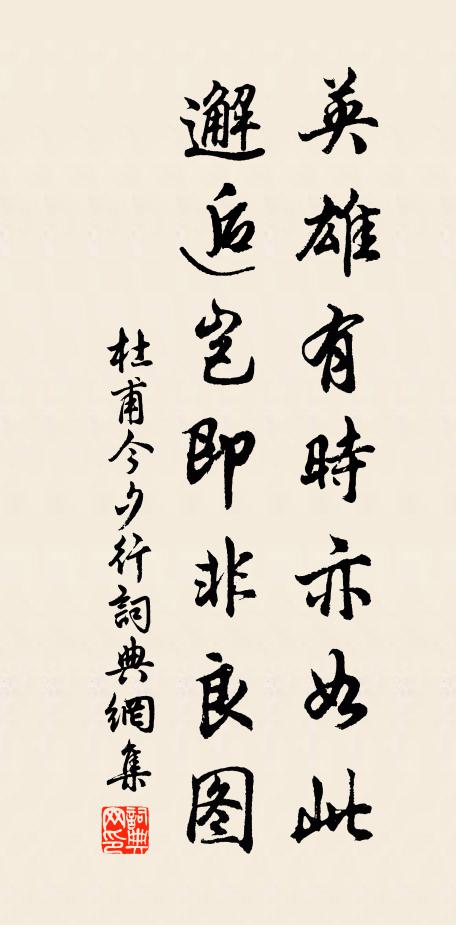 英雄有時亦如此
邂逅豈即非良图
杜甫今夕行詞典網集
詞典网印